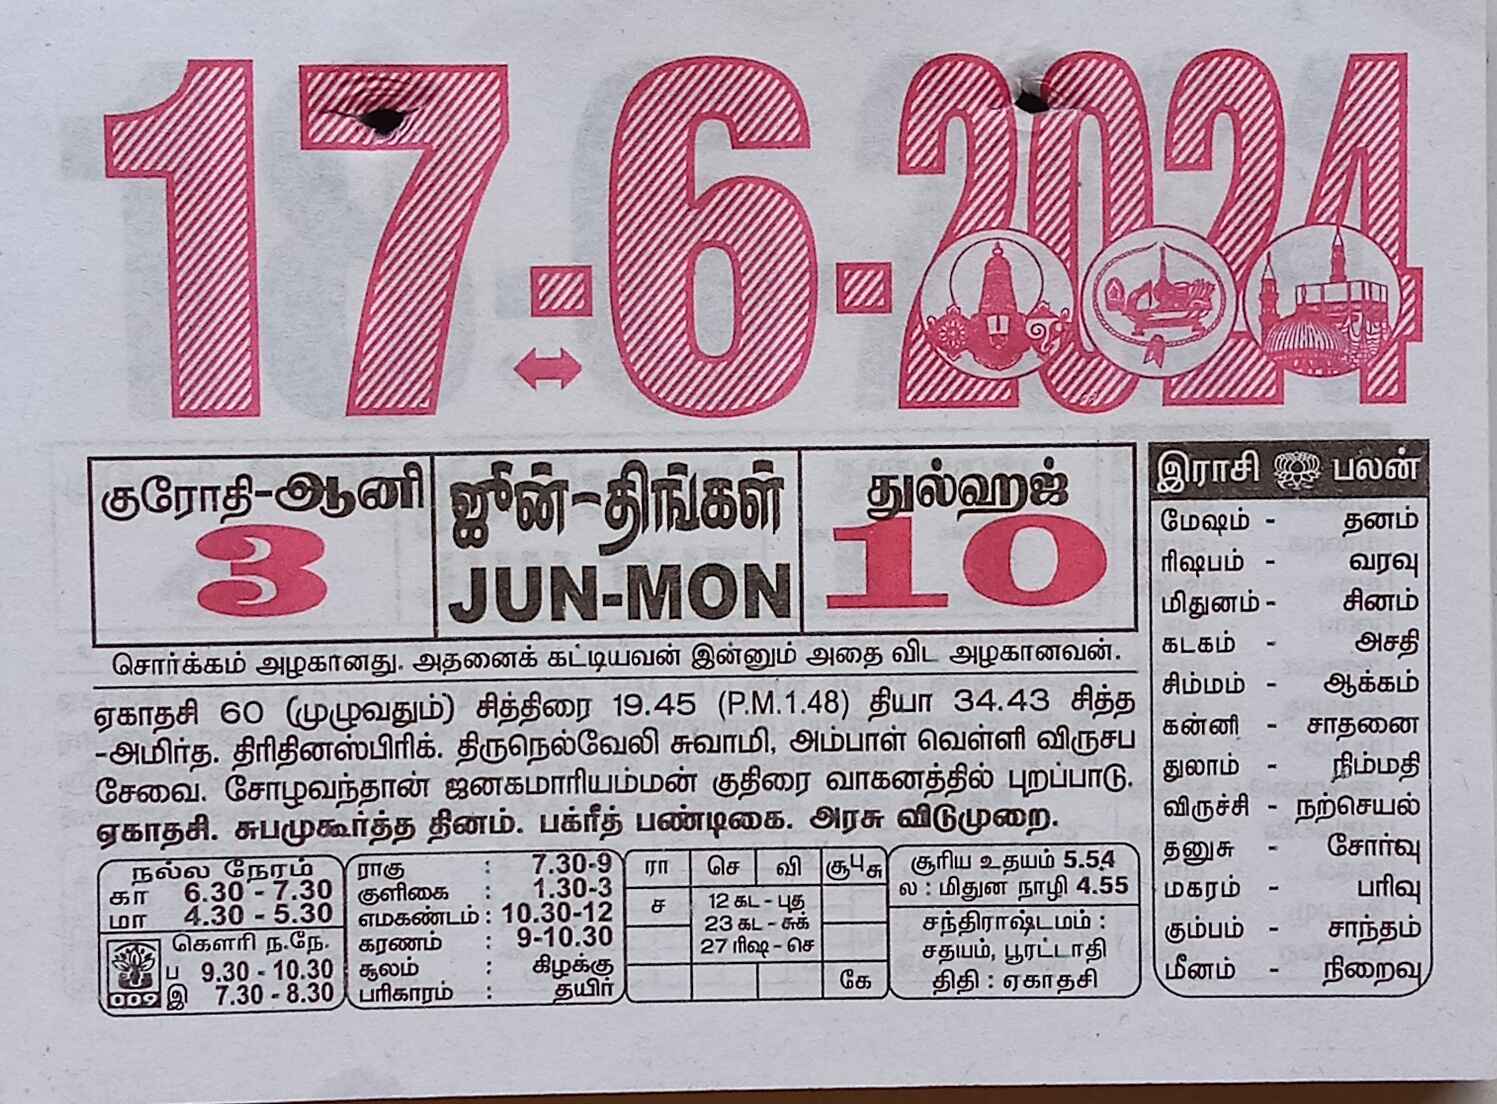 17-6-2024
குரோதி-ஆனி
3
ஜூன்-திங்கள்
JUN-MON
துல்ஹஜ்
10
சொர்க்கம் அழகானது. அதனைக் கட்டியவன் இன்னும் அதை விட அழகானவன்.
ஏகாதசி 60 (முழுவதும்) சித்திரை 19.45 (P.M.1.48) தியா 34.43 சித்த
-அமிர்த. திரிதினஸ்பிரிக். திருநெல்வேலி சுவாமி, அம்பாள் வெள்ளி விருசப
சேவை. சோழவந்தான் ஜனகமாரியம்மன் குதிரை வாகனத்தில் புறப்பாடு.
ஏகாதசி. சுபமுகூர்த்த தினம். பக்ரீத் பண்டிகை. அரசு விடுமுறை.
நல்ல நேரம்
கா 6.30 - 7.30
மா 4.30 - 5.30
கௌரி ந.நே.
ப 9.30 - 10.30
இ 7.30 - 8.30
009
ராகு : 7.30-9
குளிகை : 1.30-3
எமகண்டம் : 10.30-12
கரணம் : 9-10.30
சூலம் : கிழக்கு
பரிகாரம் : தயிர்
ரா செ வி சூபுசு
ச
12 கட - புத
23 கட - சுக்
27 ரிஷ - செ
கே
சூரிய உதயம் 5.54
ல : மிதுன நாழி 4.55
சந்திராஷ்டமம் :
சதயம், பூரட்டாதி
திதி : ஏகாதசி
இராசி பலன்
மேஷம் - தனம்
ரிஷபம் - வரவு
மிதுனம் - சினம்
கடகம் - அசதி
சிம்மம் - ஆக்கம்
கன்னி - சாதனை
துலாம் - நிம்மதி
விருச்சி - நற்செயல்
தனுசு - சோர்வு
மகரம் - பரிவு
கும்பம் - சாந்தம்
மீனம் - நிறைவு